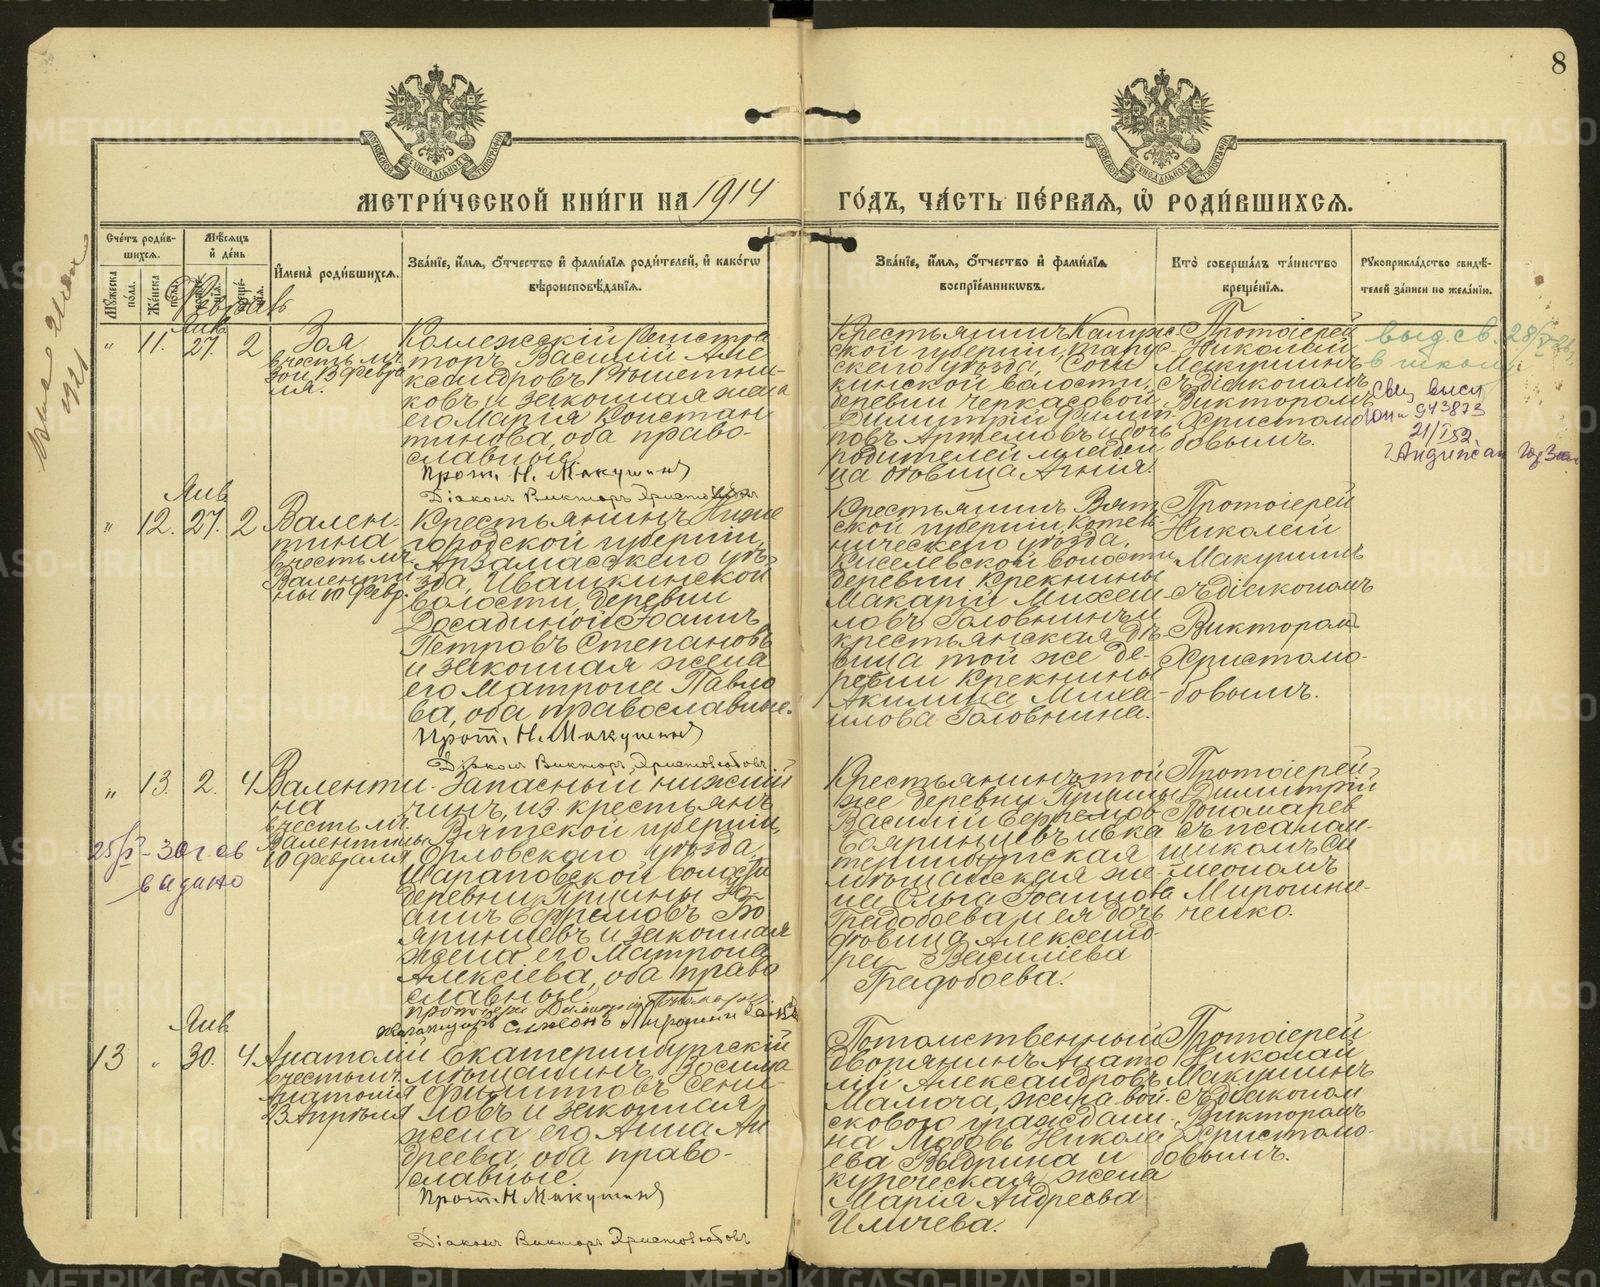 8
МЕТРИ́ЧЕСКОЙ КНИ́ГИ НА 1914
ГО́ДЪ, ЧА́СТЬ ПЕ́РВАЯ, Ѿ РОДИ́ВШИХСЯ.
Сче́тъ роди́в-
шихся.
Мѣ́сяцъ
и́ де́нь
Мꙋ́жеска по́ла.
Же́нска по́ла.
И҆мена̀ роди́вшихся.
Зва́нїе, и҆́мя, ѻ҆́тчество и҆ фами́лїѧ роди́телей, и҆ како́гѡ
вѣроисповѣ́данїѧ.
Зва́нїе, и҆́мя, ѻ҆́тчество и҆ фами́лїѧ
воспрїе́мниковъ.
Кто̀ соверша́лъ та́инство
креще́нїѧ.
Рꙋкоприкла́дство свидѣ́-
телей за́писи по жела́нїю.
Февраль
Янв.
„ 11. 27. 2
Зоя
въ честь мч.
Зои 13 Февра
ля.
Коллежскій Регистра
торъ Василій Але
ксандровъ Рѣшетни-
ковъ и законная жена
его Марія Констан
тинова, оба право-
славные.
Прот. Н. Макушинъ
Діаконъ Викторъ Христолюбовъ
Крестьянинъ Калуж-
ской губерніи,
скаго уѣзда,
кинской волости,
деревни Черкасовой
Димитрій Филип-
повъ Артемовъ и дочь
родителей младен
ца дѣвица Агнія.
Протоіерей
Николай
Макушинъ
съ діакономъ
Викторомъ
Христолю
бовымъ.
выд. св. 28/
в школу.
21/I 52
Янв.
„ 12. 27. 2
Вален-
тина
въ честь мч.
Валенти
ны 10 Февр.
Крестьянинъ Ниже
городской губерніи,
Арзамасскаго уѣ-
зда, Ивашкинской
волости, деревни
Досадиной Іоаннъ
Петровъ Степановъ
и законная жена
его Матрона Павло
ва, оба православные.
Прот. Н. Макушинъ
Діаконъ Викторъ Христолюбовъ
Крестьянинъ Вят
ской губерніи, Котель-
ническаго уѣзда,
Киселевской волости
деревни Крекнины
Макарій Михаи-
ловъ Головнинъ и
крестьянская дѣ-
вица той же де-
ревни Крекнины
Акилина Миха-
илова Головнина.
Протоіерей
Николай
Макушинъ
съ діакономъ
Викторомъ
Христолю-
бовымъ.
„ 13. 2. 4
Валенти
на
въ честь мч.
Валентины
10 февраля
Запасный нижній
чинъ, изъ крестьянъ
Вятской губерніи,
Орловскаго уѣзда,
Шараповской волости
деревни Пушины Іо-
аннъ Ефремовъ Бо
яринцевъ и законная
жена его Матрона
Алексіева, оба право
славные.
Протоіерей Димитрій Пономаревъ
Псаломщикъ Симеонъ Мирошниченко
Крестьянинъ той
же деревни Пушины
Василій Ефремовъ
Бояринцевъ и Ека
теринбургская
мѣщанская же-
на Ольга Іоаннова
Градобоева и ея дочь
дѣвица Александ-
ра Василіева
Градобоева.
Протоіерей
Димитрій
Пономарев
съ псалом-
щикомъ Си
меономъ
Мирошни-
ченко.
выдано
Янв.
13 „ 30. 4
Анатолій
въ честь мч.
Анатолія
23 Апрѣля
Екатеринбургскій
мѣщанинъ Зосима
Филипповъ Сени-
ловъ и законная
жена его Анна Ан
дреева, оба право-
славные.
Прот. Н. Макушинъ
Діаконъ Викторъ Христолюбовъ
Потомственный
дворянинъ Анато
лій Александровъ
Мамона, жена вой-
сковаго граждани-
на Любовь Никола
ева Выдрина и
купеческая жена
Марія Андреева
Иличева.
Протоіерей
Николай
Макушинъ
съ діакономъ
Викторомъ
Христолю-
бовымъ.